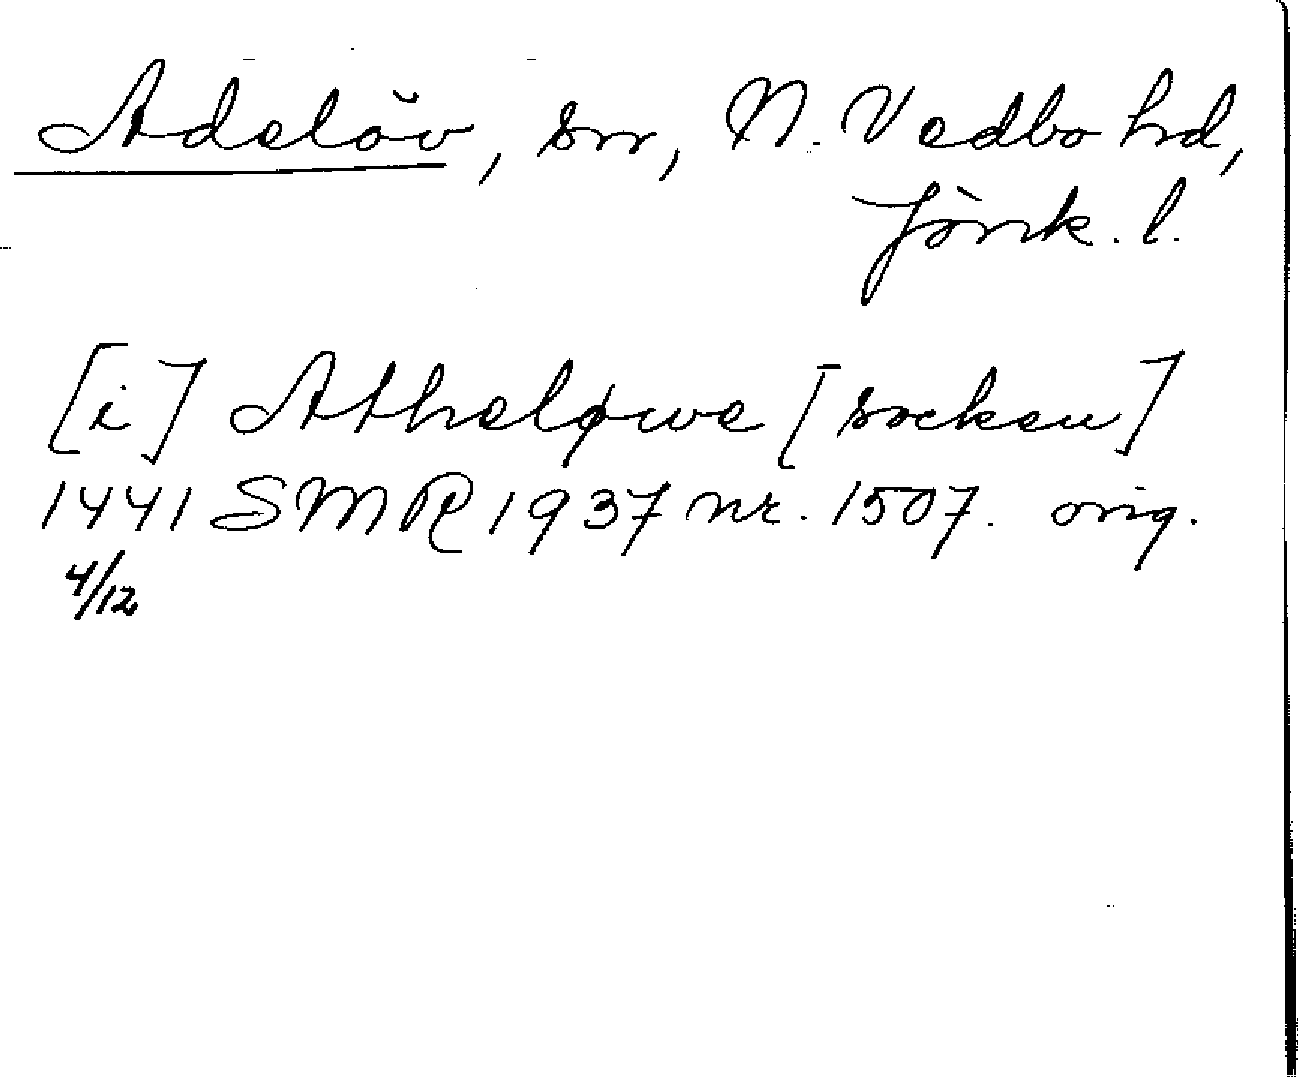 Adelöv, sn, N. Vedbo hd,
Jönk. l.
[i] Atheløwe [socken]
1441 SMR 1937 nr. 1507. orig.
4/12